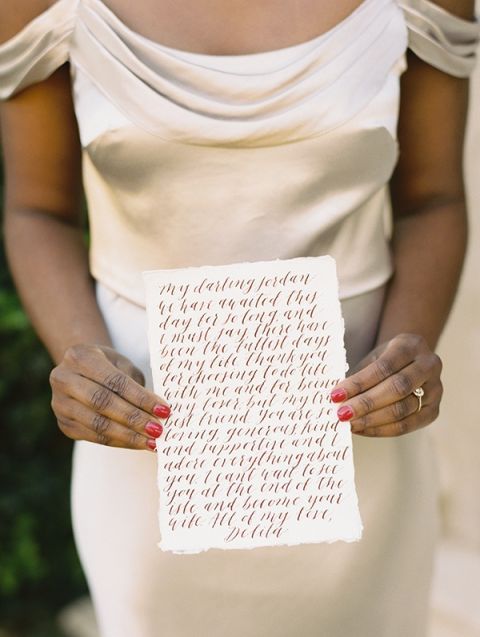 my darling Jordan
we have awaited this
day for so long and
I must say, there have
been the fullest days
of my life. thank you
for choosing to do life
with me and for being
my lover but my
my friend you are so
loving, generous kind
and supportive and I
adore everything about
you. I can't wait to see
you at the end of the
isle and become your
wife. All of my love,
Delila